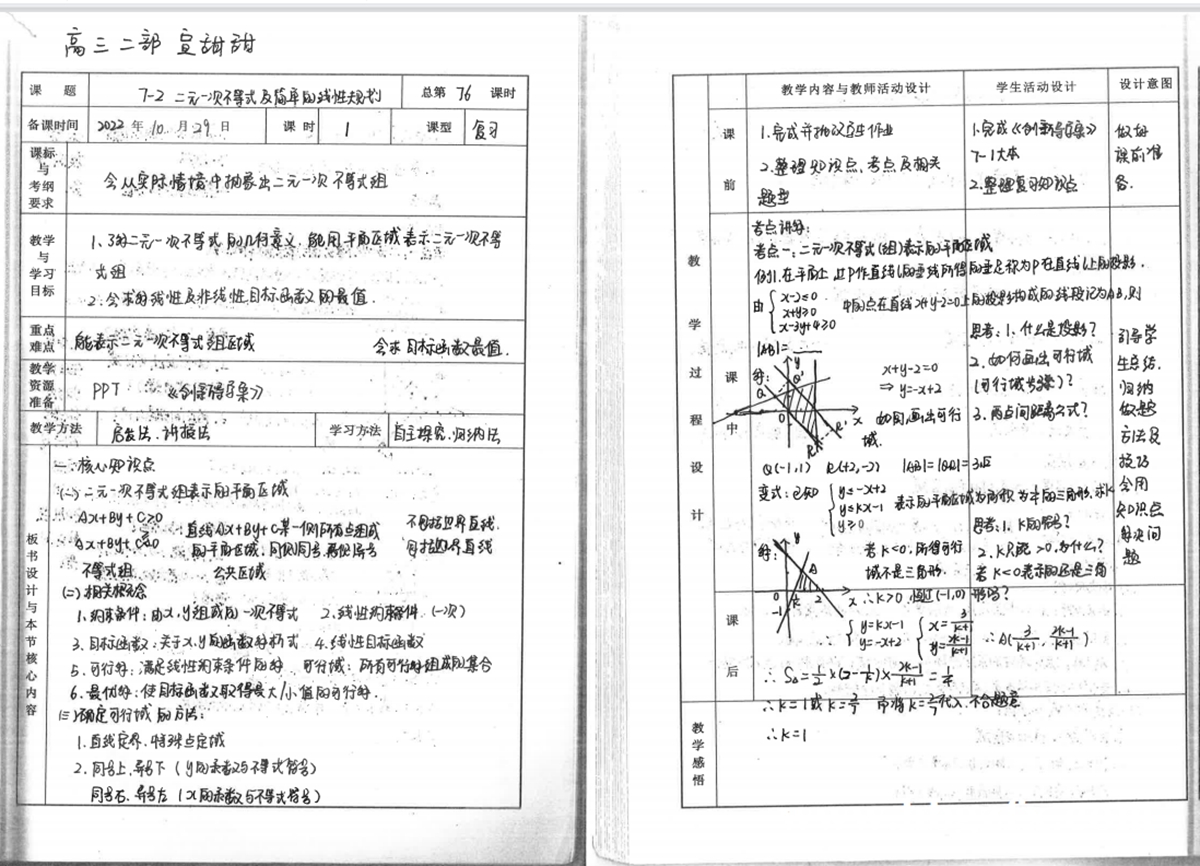 高三二部 宣甜甜
课 题 7-2 二元一次不等式及简单的线性规划 总第 76 课时
备课时间 2022 年 10 月 29 日 课 时 1 课型 复习
课标与考纲要求 会从实际情境中抽象出二元一次不等式组
教学与学习目标 1、了解二元一次不等式的几何意义,能用平面区域表示二元一次不等
式组
2.会求的线性及非线性目标函数的最值.
重点难点 能表示二元一次不等式组区域 会求目标函数最值.
教学资源准备 PPT 《创新导学案》
教学方法 启发法.讲授法 学习方法 自主探究.归纳法
板书设计与本节核心内容
一.核心知识点
(一)二元一次不等式组表示的平面区域
Ax+By+C>0 直线Ax+By+C某一侧所有点组成 不包括边界直线
Ax+By+C≥0 的平面区域,同侧同号,异侧异号 包括边界直线
不等式组 公共区域
(二)相关概念
1.约束条件:由x,y组成的一次不等式 2.线性约束条件(一次)
3.目标函数:关于x,y的函数解析式 4.线性目标函数
5.可行解:满足线性约束条件的解 可行域:所有可行解组成的集合
6.最优解:使目标函数取得最大/小值的可行解.
(三)确定可行域的方法:
1.直线定界.特殊点定域
2.同号上,异号下(y的系数与不等式符号)
同号右.异号左(x的系数与不等式符号)
教学内容与教师活动设计 学生活动设计 设计意图
教学过程设计
课前
1.完成并批改学生作业
2.整理知识点、考点及相关
题型
1.完成《创新导学案》
7-1大本
2.整理复习知识点
做好
课前准
备.
课中
考点讲解:
考点一:二元一次不等式(组)表示的平面区域
例1.在平面上,过P作直线l的垂线所得的垂足称为P在直线l上的投影.
由 { x-2≤0
x+y≥0
x-3y+4≥0
中的点在直线x+y-2=0上的投影构成的线段记为AB,则
|AB|=____
解: y Q' Q 0 x R' R
x+y-2=0
⇒ y=-x+2
如图,画出可行
域.
思考:1.什么是投影?
2.如何画出可行域
(可行域步骤)?
3.两点间距离公式?
引导学
生总结.
归纳
做题
方法及
技巧
会用
知识点
解决问
题
Q(-1,1) R(+2,-2) |AB|=|QR|=3√2
变式:已知 { y≤-x+2
y≤kx-1
y≥0
表示的平面区域为面积为1/4的三角形.求k
解: y A 0 2 x -1
若k<0,所得可行
域不是三角形.
∴k>0,
思考:1.k的符号?
2.k只能>0,为什么?
若k<0表示的还是三角
形吗?
课后
∴ { y=kx-1
y=-x+2
{ x=3/(k+1)
y=(2k-1)/(k+1)
∴A(3/(k+1), (2k-1)/(k+1))
∴S△=1/2×(2-1/k)×(2k-1)/(k+1)=1/4
∴k=1或k=2/7 而将k=2/7代入,不合题意
∴k=1
教学感悟